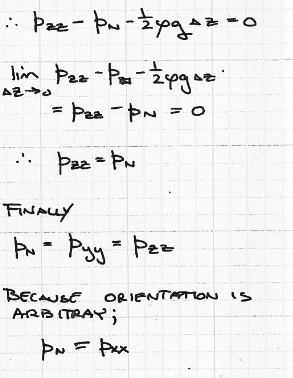 ∴ p_zz - p_N - ½φg Δz = 0
lim p_zz - p_N - ½φg Δz
Δz→0
= p_zz - p_N = 0
∴ p_zz = p_N
FINALLY
p_N = p_yy = p_zz
BECAUSE ORIENTATION IS
ARBITRAY;
p_N = p_xx